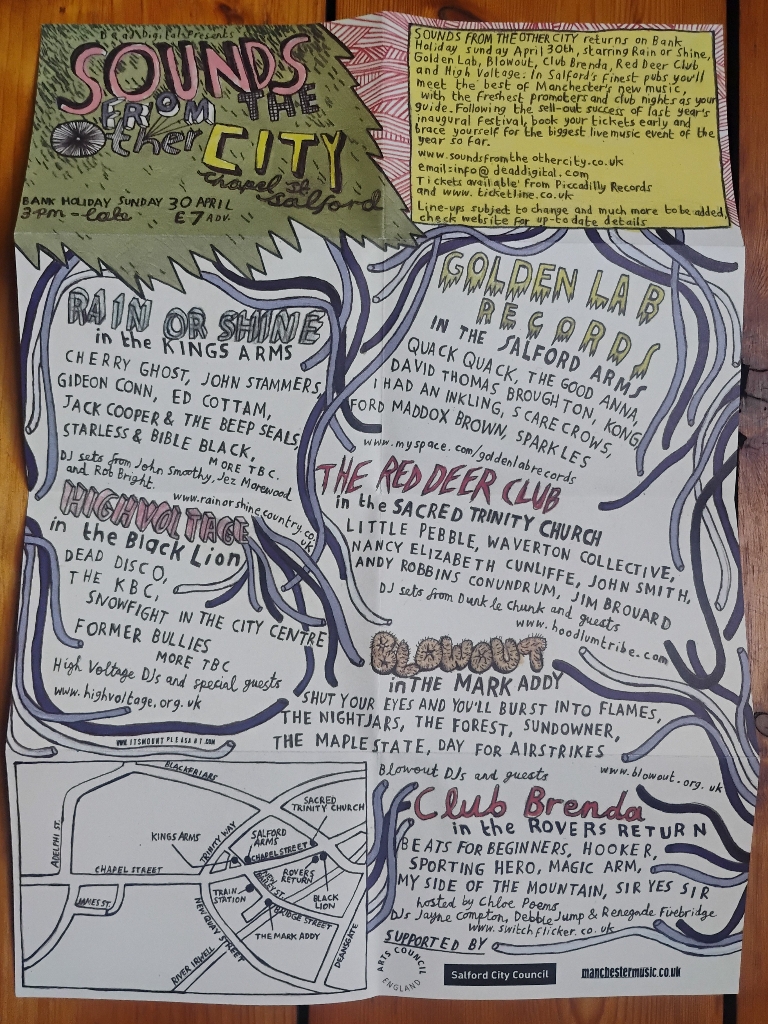 Dead Digital Presents
SOUNDS
FROM THE
Other CITY
Chapel St.
Salford
BANK HOLIDAY SUNDAY 30 APRIL
3PM - late £7 ADV.
SOUNDS FROM THE OTHER CITY returns on Bank
Holiday sunday April 30th, starring Rain or Shine,
Golden Lab, Blowout, Club Brenda, Red Deer Club
and High Voltage. In Salford's finest pubs you'll
meet the best of Manchester's new music,
with the freshest promoters and club nights as your
guide. Following the sell-out success of last year's
inaugural festival, book your tickets early and
brace yourself for the biggest live music event of the
year so far.
www.soundsfromtheothercity.co.uk
email: info@deaddigital.com
Tickets available from Piccadilly Records
and www.ticketline.co.uk
Line-ups subject to change and much more to be added,
check website for up-to date details
RAIN OR SHINE
in the KINGS ARMS
CHERRY GHOST, JOHN STAMMERS,
GIDEON CONN, ED COTTAM,
JACK COOPER & THE BEEP SEALS
STARLESS & BIBLE BLACK,
MORE TBC.
DJ sets from John Smothy, Jez Morewood
and Rob Bright.
www.rainorshinecountry.co.
uk
HIGH VOLTAGE
in the Black Lion
DEAD DISCO,
THE KBC,
SNOWFIGHT IN THE CITY CENTRE
FORMER BULLIES
MORE TBC
High Voltage DJs and special guests
www.highvoltage.org.uk
WWW.ITSMOUNTPLEASANT.COM
GOLDEN LAB
RECORDS
IN THE SALFORD ARMS
QUACK QUACK, THE GOOD ANNA,
DAVID THOMAS BROUGHTON, KONG,
I HAD AN INKLING, SCARECROWS,
FORD MADDOX BROWN, SPARKLES
www.myspace.com/goldenlabrecords
THE RED DEER CLUB
in the SACRED TRINITY CHURCH
LITTLE PEBBLE, WAVERTON COLLECTIVE,
NANCY ELIZABETH CUNLIFFE, JOHN SMITH,
ANDY ROBBINS CONUNDRUM, JIM BROUARD
DJ sets from Dunkle Chunk and guests
www.hoodlumtribe.com
BLOWOUT
in THE MARK ADDY
SHUT YOUR EYES AND YOU'LL BURST INTO FLAMES,
THE NIGHTJARS, THE FOREST, SUNDOWNER,
THE MAPLE STATE, DAY FOR AIRSTRIKES
Blowout DJs and guests
www.blowout.org.uk
Club Brenda
in the ROVERS RETURN
BEATS FOR BEGINNERS, HOOKER,
SPORTING HERO, MAGIC ARM,
MY SIDE OF THE MOUNTAIN, SIR YES SIR
hosted by Chloe Poems
DJs Jayne Compton, Debble Jump & Renegade Firebridge
www.switchflicker.co.uk
SUPPORTED BY
ARTS COUNCIL
ENGLAND
Salford City Council
manchestermusic.co.uk
BLACKFRIARS
SACRED
TRINITY CHURCH
ADELPHI ST.
KINGS ARMS
TRINITY WAY
SALFORD
ARMS
CHAPEL STREET
CHAPEL STREET
ROVERS
RETURN
JAMES ST.
TRAIN
STATION
NEW
BAILEY ST.
BLACK
LION
BRIDGE STREET
NEW QUAY STREET
THE MARK ADDY
DEANSGATE
RIVER IRWELL